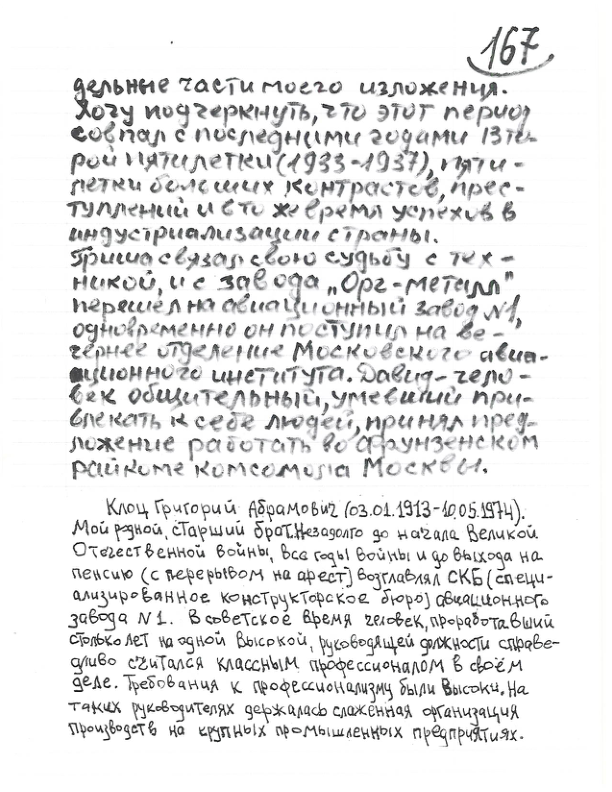 167
дельные части моего изложения.
Хочу подчеркнуть, что этот период
совпал с последними годами Вто-
рой пятилетки (1933-1937), пяти-
летки больших контрастов, прес-
туплений и в то же время успехов в
индустриализации страны.
Гриша связал свою судьбу с тех-
никой, и с завода „Орг-металл"
перешел на авиационный завод №1,
одновременно он поступил на ве-
чернее отделение Московского авиа-
ционного института. Давид-чело-
век общительный, умевший при-
влекать к себе людей, принял пред-
ложение работать во Фрунзенском
райкоме комсомола Москвы.
Клоц Григорий Абрамович (03.01.1913-10.05.1974).
Мой родной, старший брат. Незадолго до начала Великой
Отечественной войны, все годы войны и до выхода на
пенсию (с перерывом на арест) возглавлял СКБ (специ-
ализированное конструкторское бюро) авиационного
завода №1. В советское время человек, проработавший
столько лет на одной высокой, руководящей должности справе-
дливо считался классным профессионалом в своём
деле. Требования к профессионализму были высоки. На
таких руководителях держалась слаженная организация
производств на крупных промышленных предприятиях.